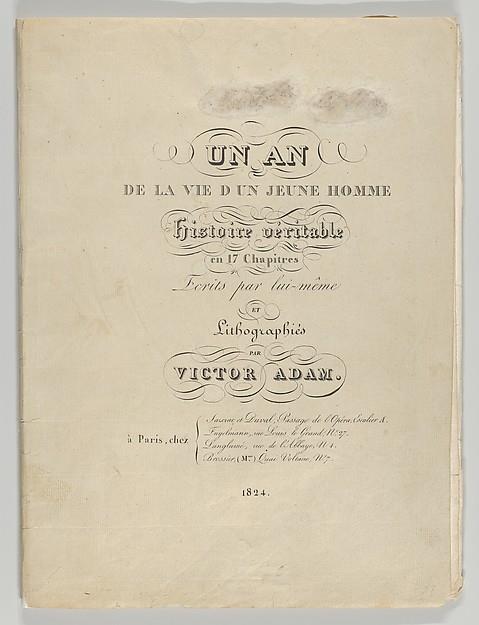 UN AN
DE LA VIE D'UN JEUNE HOMME
Histoire véritable
en 17 Chapitres
Ecrits par lui-même
ET
Lithographiés
PAR
VICTOR ADAM.
à Paris, chez
et Duval, Passage de l'Opéra, Escalier A.
Engelmann, rue Louis le Grand, N° 27.
Langlumé, rue de l'Abbaye, N° 4.
Bressier, (Mme) Quai Voltaire, N° 7.
1824.